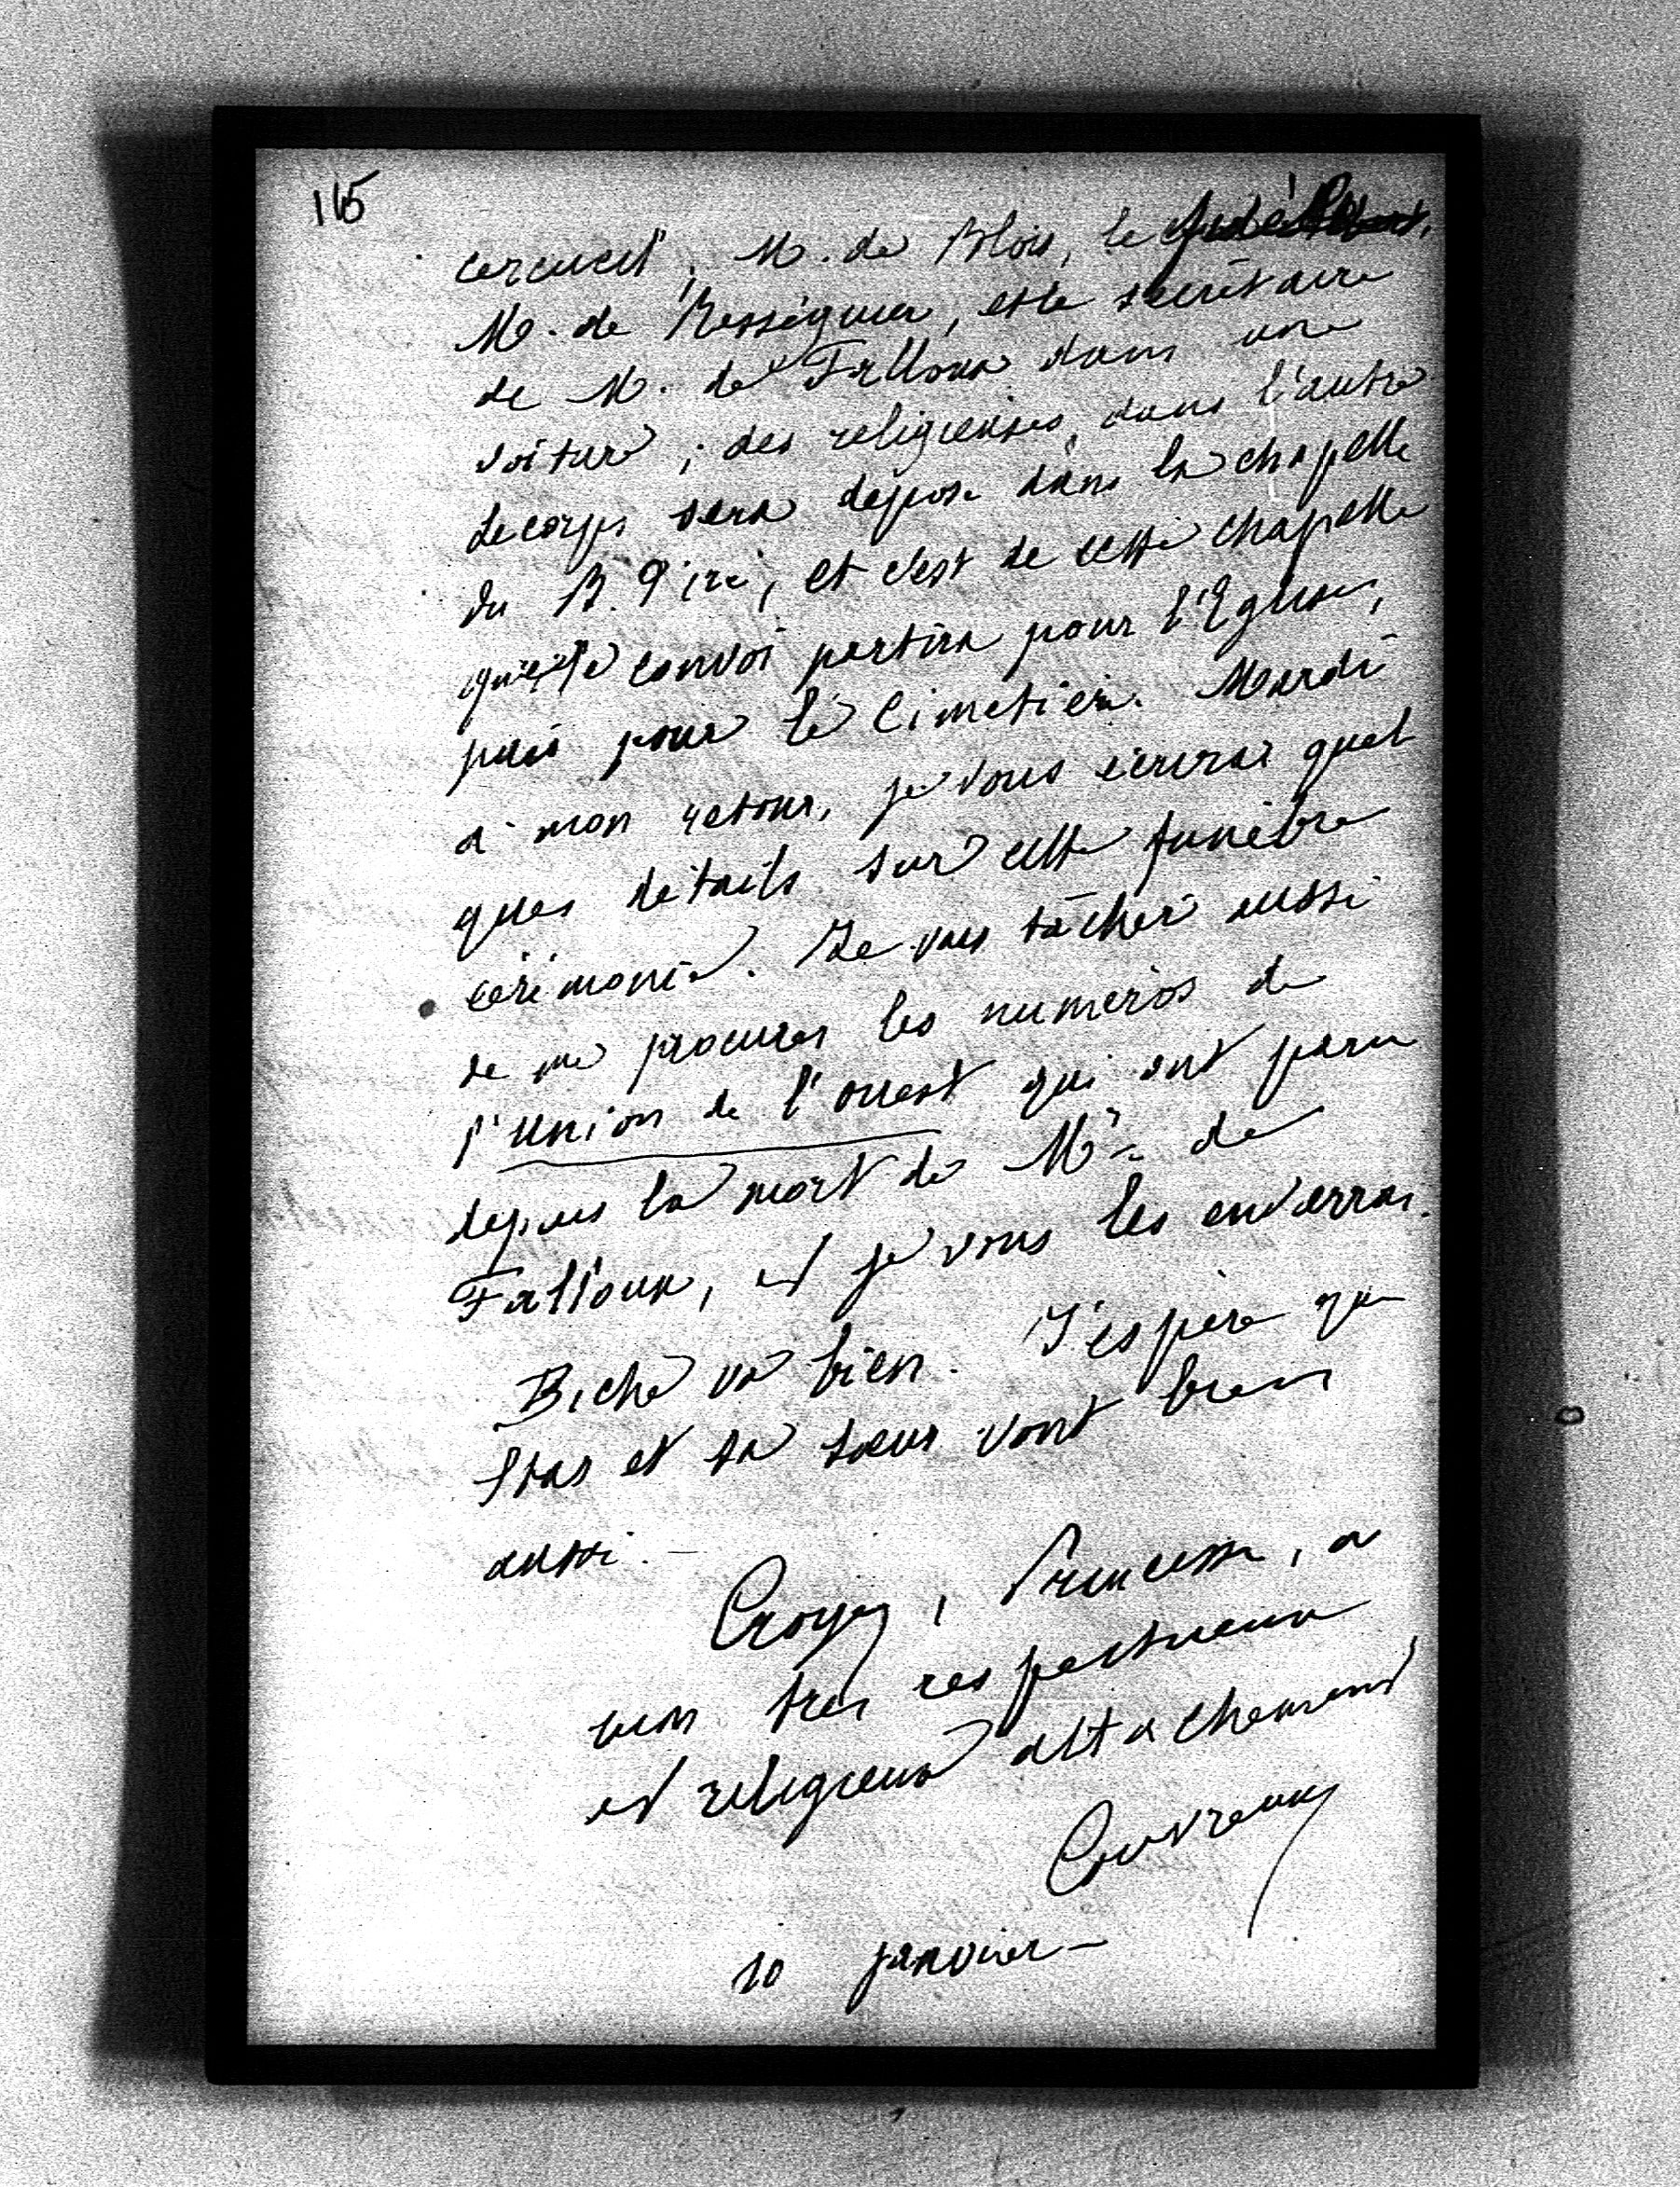 165
cercueil, M. de Blois, le
M. de Rességuier, et le secrétaire
de M. de Falloux dans une
voiture ; des religieuses, dans l'autre
Le corps sera déposé dans la chapelle
du B. Père, et c'est de cette chapelle
que le convoi partira pour l'Eglise,
puis pour le Cimetière. Mardi
à mon retour, je vous écrirai quel
ques détails sur cette funèbre
cérémonie. Je vais tâcher aussi
de me procurer les numéros de
l'Union de l'ouest qui ont paru
depuis la mort de Mr de
Falloux, et je vous les enverrai.
Biche va bien. J'espère que
et sa soeur vont bien
aussi. —
Croyez, Princesse, a
mon très respectueux
et religieux attachement
Couvreux
10 janvier —